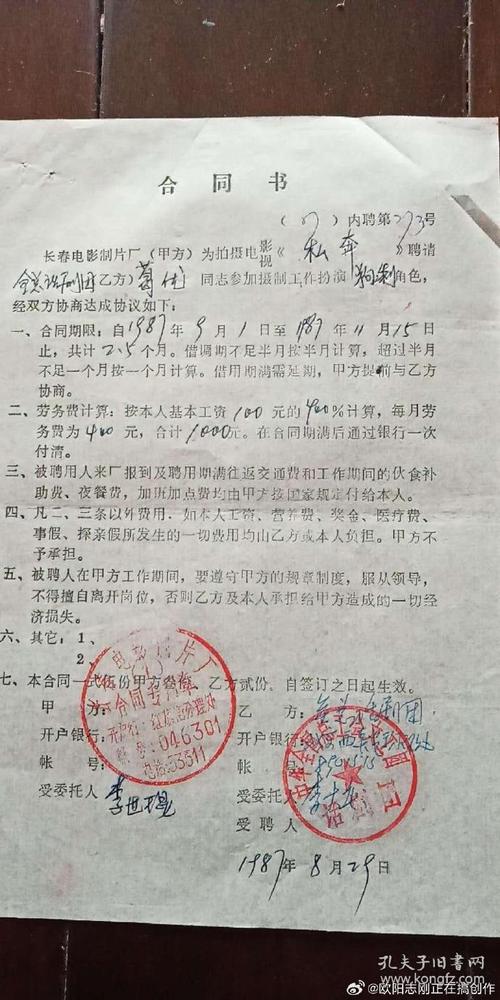 合同书
(87)内聘第273号
长春电影制片厂(甲方)为拍摄电影视《私奔》聘请
全总话剧团(乙方)葛优同志参加摄制工作扮演狗剩角色,
经双方协商达成协议如下:
一、合同期限:自1987年9月1日至1987年11月15日
止,共计2.5个月。借调期不足半月按半月计算,超过半月
不足一个月按一个月计算。借用期满需延期,甲方提前与乙方
协商。
二、劳务费计算:按本人基本工资100元的400%计算,每月劳
务费为400元,合计1000元。在合同期满后通过银行一次
付清。
三、被聘用人来厂报到及聘用期满往返交通费和工作期间的伙食补
助费、夜餐费,加班加点费均由甲方按国家规定付给本人。
四、凡二、三条以外费用,如本人工资、营养费、奖金、医疗费、
事假、探亲假所发生的一切费用均由乙方或本人负担。甲方不
予承担。
五、被聘人在甲方工作期间,要遵守甲方的规章制度,服从领导,
不得擅自离开岗位,否则乙方及本人承担给甲方造成的一切经
济损失。
六、其它:1、
2、
七、本合同一式伍份甲方叁份,乙方贰份,自签订之日起生效。
甲方: 乙方:全总话剧团
开户银行: 开户银行:
帐号: 帐号:
受委托人 李世 受委托人
受聘人
1987年8月29日
电影制片厂
合同专用章
046301
电话:53311
话剧团
孔夫子旧书网
@欧阳志刚正在搞创作